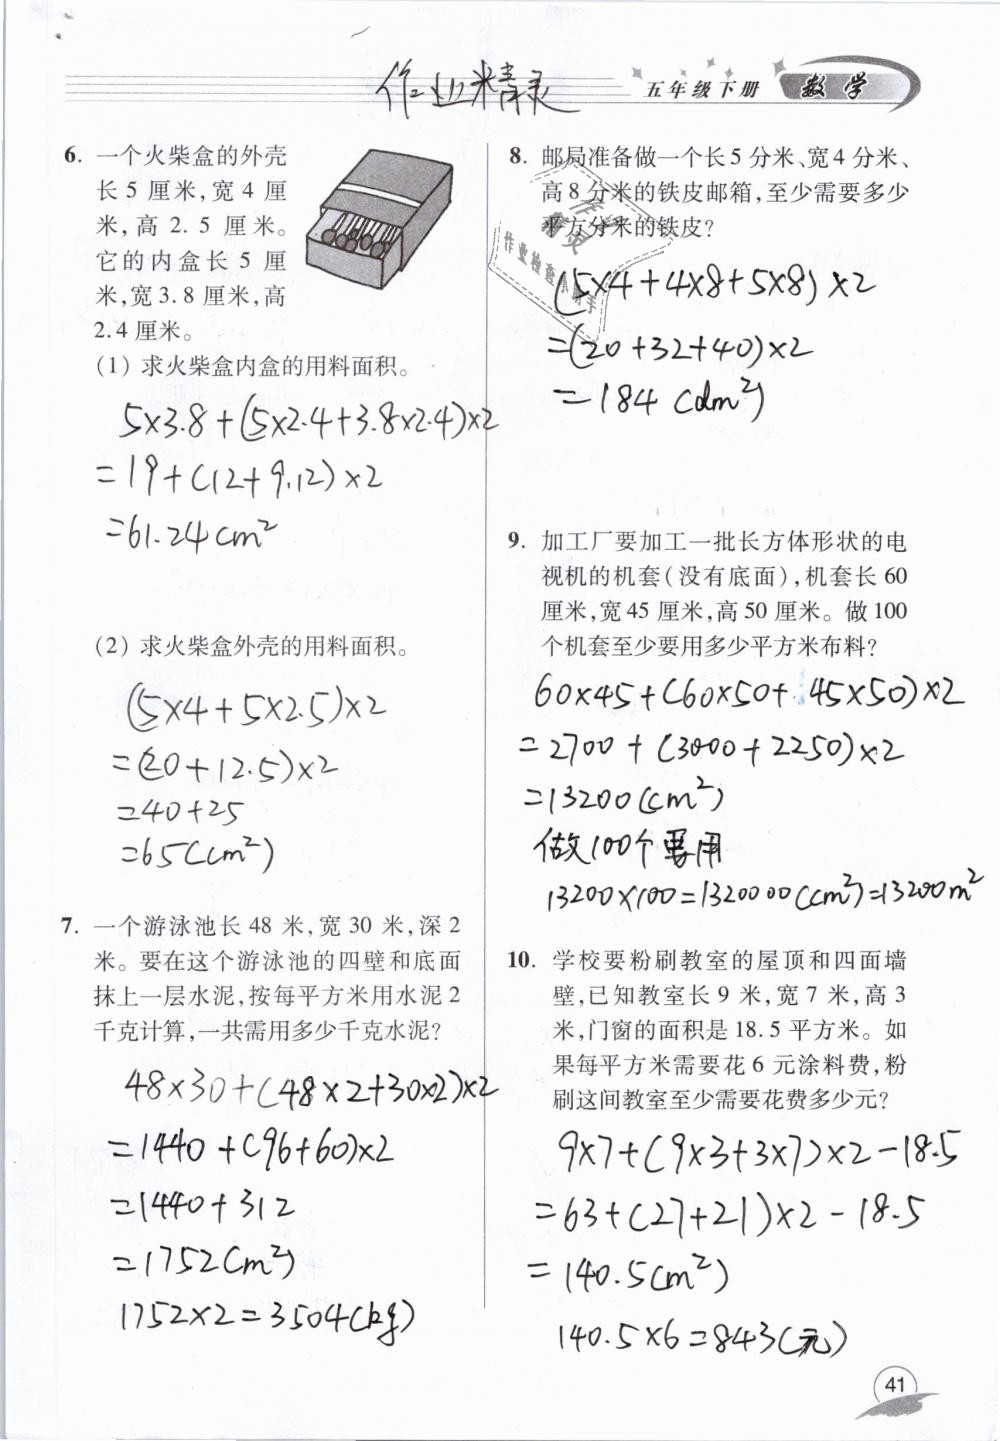 作业精灵
五年级下册 数学
6. 一个火柴盒的外壳
长 5 厘米,宽 4 厘
米,高 2.5 厘米。
它的内盒长 5 厘
米,宽 3.8 厘米,高
2.4 厘米。
(1) 求火柴盒内盒的用料面积。
5×3.8+(5×2.4+3.8×2.4)×2
=19+(12+9.12)×2
=61.24cm²
(2) 求火柴盒外壳的用料面积。
(5×4+5×2.5)×2
=(20+12.5)×2
=40+25
=65(cm²)
7. 一个游泳池长 48 米,宽 30 米,深 2
米。要在这个游泳池的四壁和底面
抹上一层水泥,按每平方米用水泥 2
千克计算,一共需用多少千克水泥?
48×30+(48×2+30×2)×2
=1440+(96+60)×2
=1440+312
=1752(m²)
1752×2=3504(kg)
8. 邮局准备做一个长 5 分米、宽 4 分米、
高 8 分米的铁皮邮箱,至少需要多少
平方分米的铁皮?
作业检查小助手
精灵
(5×4+4×8+5×8)×2
=(20+32+40)×2
=184(dm²)
9. 加工厂要加工一批长方体形状的电
视机的机套(没有底面),机套长 60
厘米,宽 45 厘米,高 50 厘米。做 100
个机套至少要用多少平方米布料?
60×45+(60×50+45×50)×2
=2700+(3000+2250)×2
=13200(cm²)
做100个要用
13200×100=1320000(cm²)=13200m²
10. 学校要粉刷教室的屋顶和四面墙
壁,已知教室长 9 米,宽 7 米,高 3
米,门窗的面积是 18.5 平方米。如
果每平方米需要花 6 元涂料费,粉
刷这间教室至少需要花费多少元?
9×7+(9×3+3×7)×2-18.5
=63+(27+21)×2-18.5
=140.5(m²)
140.5×6=843(元)
41